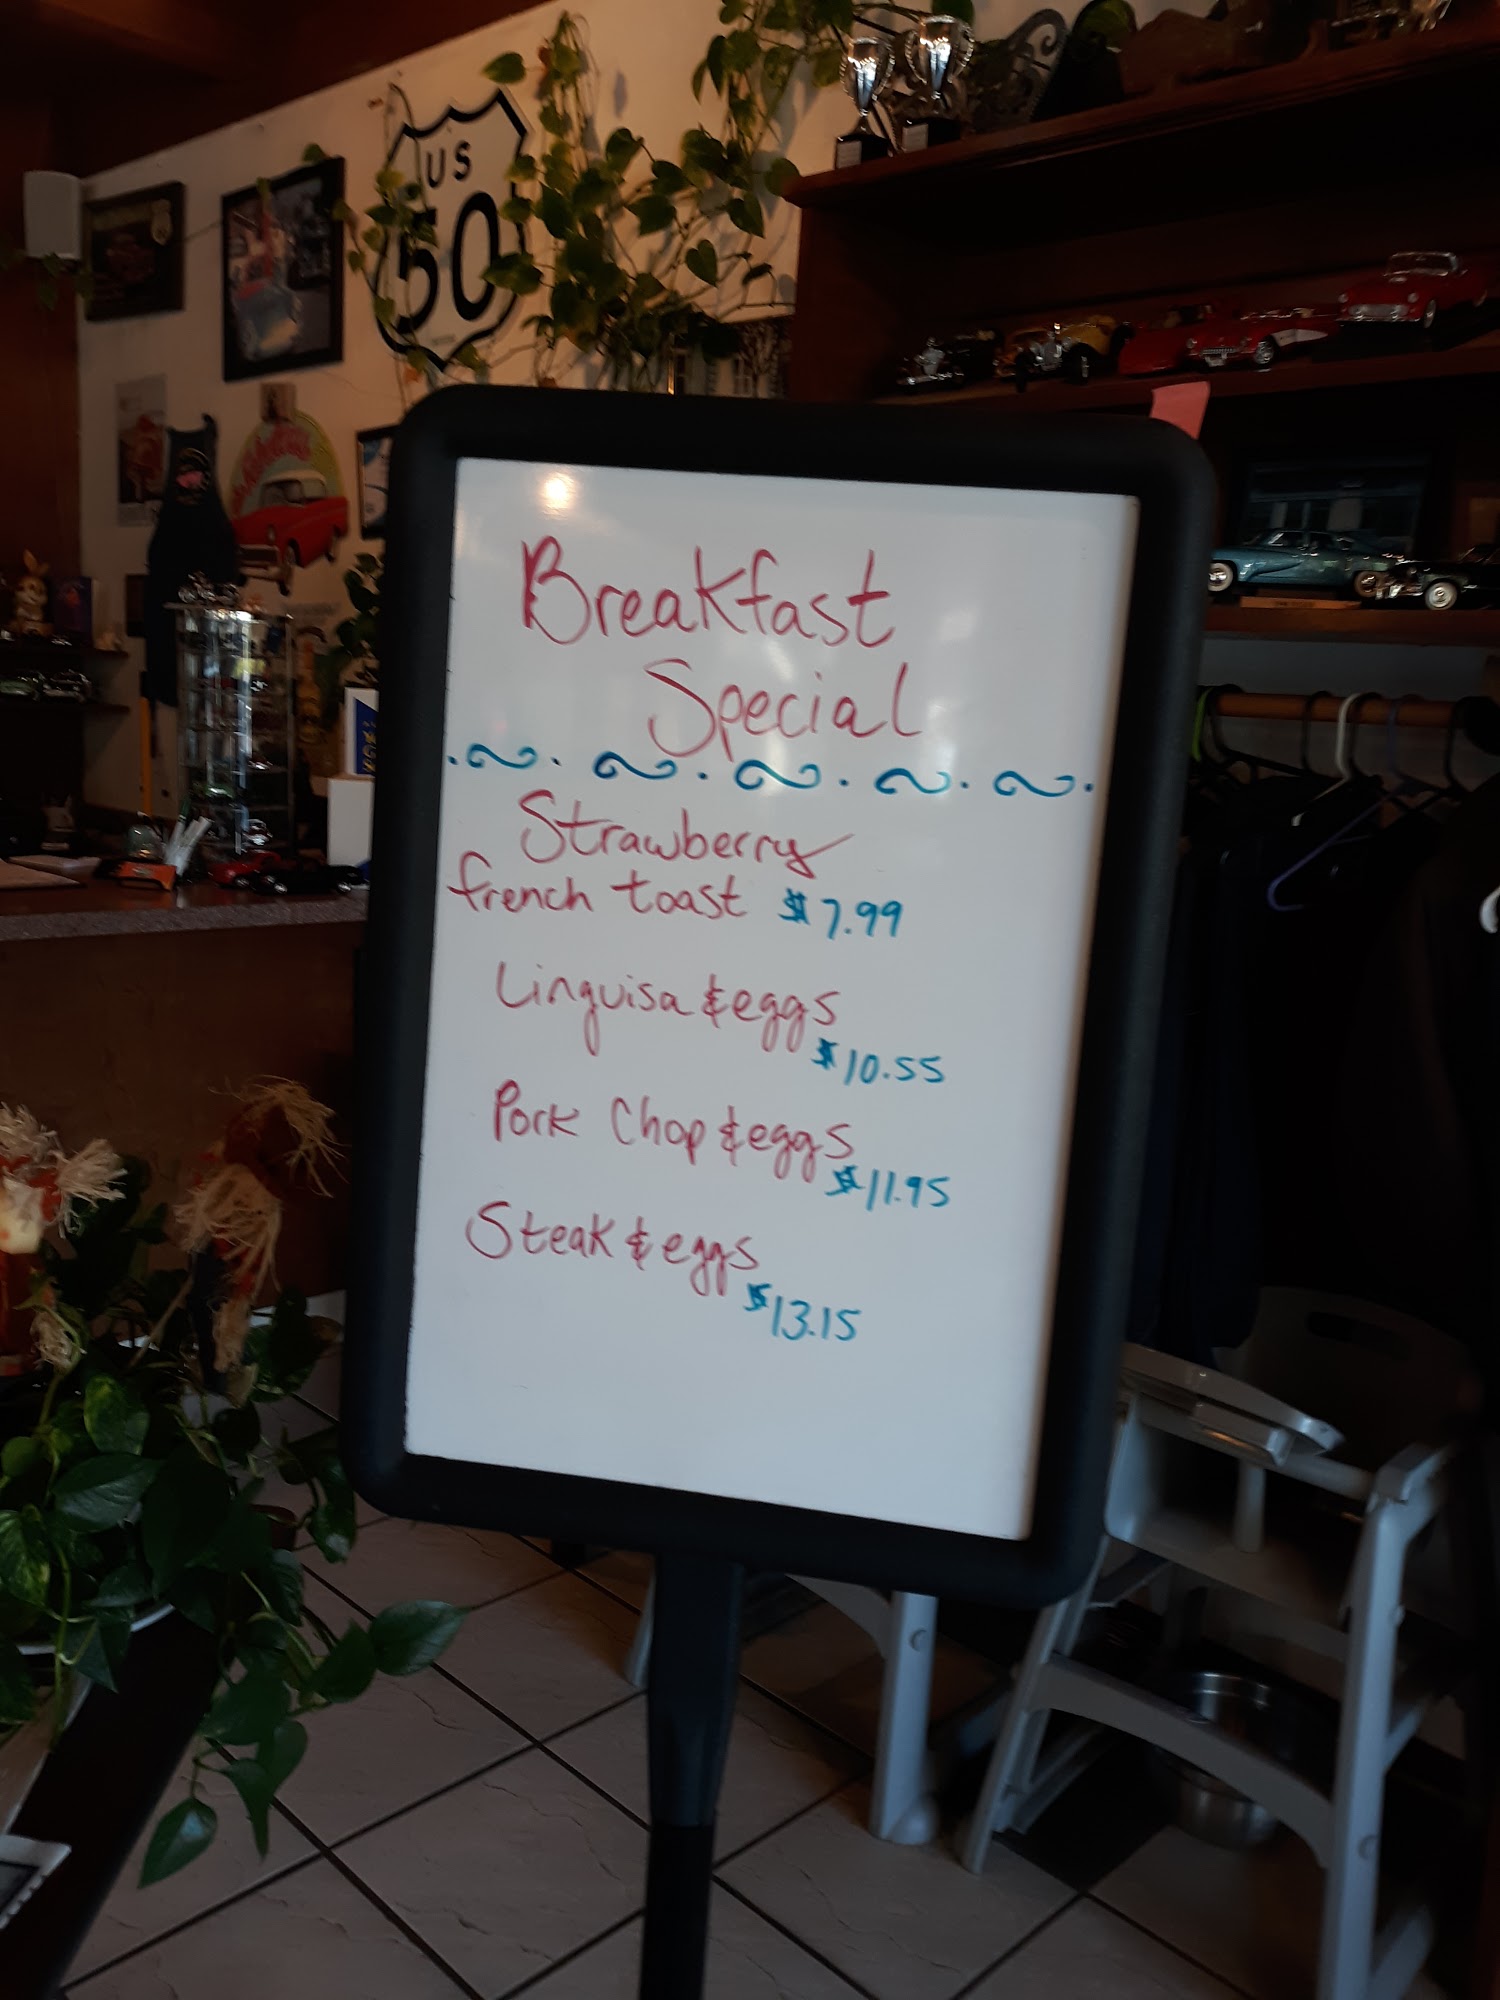 US
50
Breakfast
Special
Strawberry
french toast $7.99
Linguisa & eggs
$10.55
Pork Chop & eggs
$11.95
Steak & eggs
$13.15